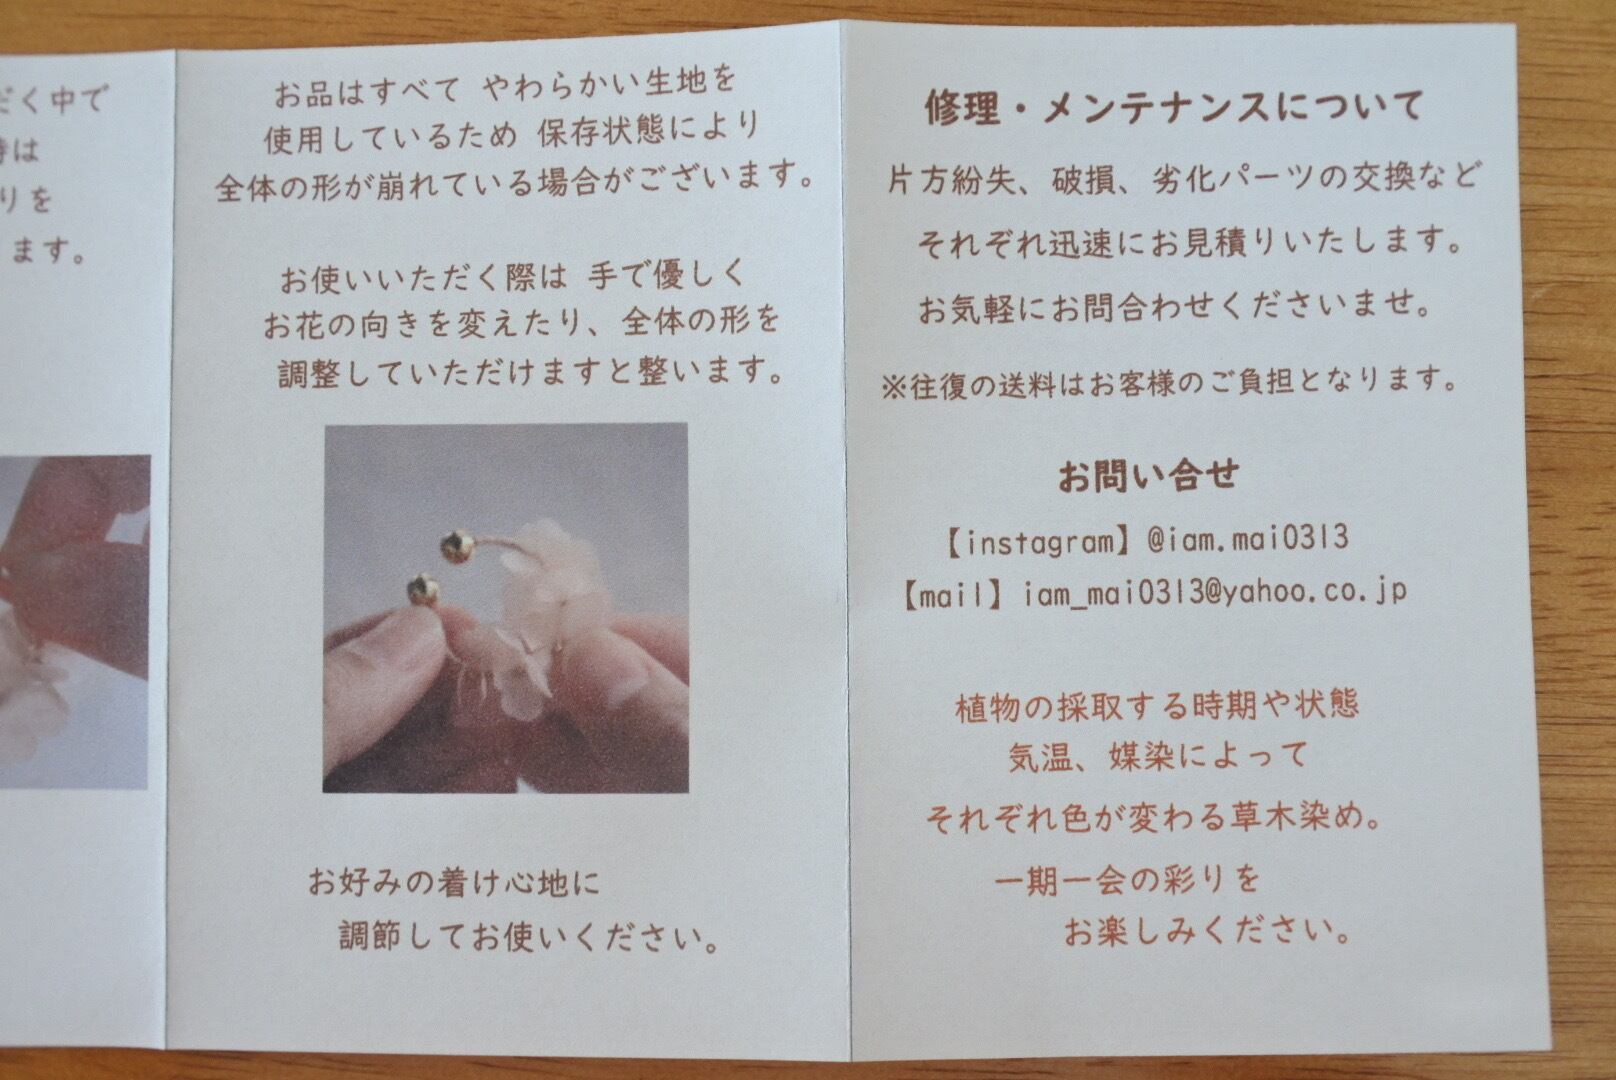 だく中で
時は
りを
ます。
お品はすべて やわらかい生地を
使用しているため 保存状態により
全体の形が崩れている場合がございます。
お使いいただく際は 手で優しく
お花の向きを変えたり、全体の形を
調整していただけますと整います。
お好みの着け心地に
調節してお使いください。
修理・メンテナンスについて
片方紛失、破損、劣化パーツの交換など
それぞれ迅速にお見積りいたします。
お気軽にお問合わせくださいませ。
※往復の送料はお客様のご負担となります。
お問い合せ
【instagram】@iam.mai0313
【mail】iam_mai0313@yahoo.co.jp
植物の採取する時期や状態
気温、媒染によって
それぞれ色が変わる草木染め。
一期一会の彩りを
お楽しみください。